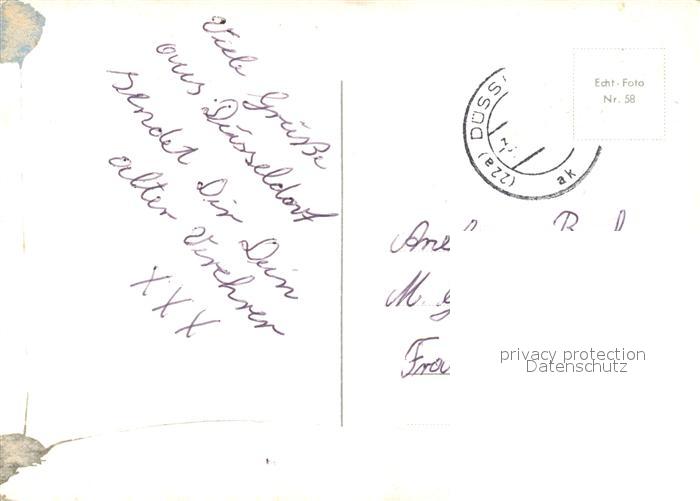 Viele Grüße
aus Düsseldorf
sendet Dir Dein
alter Verehrer
XXX
Echt-Foto
Nr. 58
(22a) DÜSS
ak
M. G
privacy protection
Datenschutz